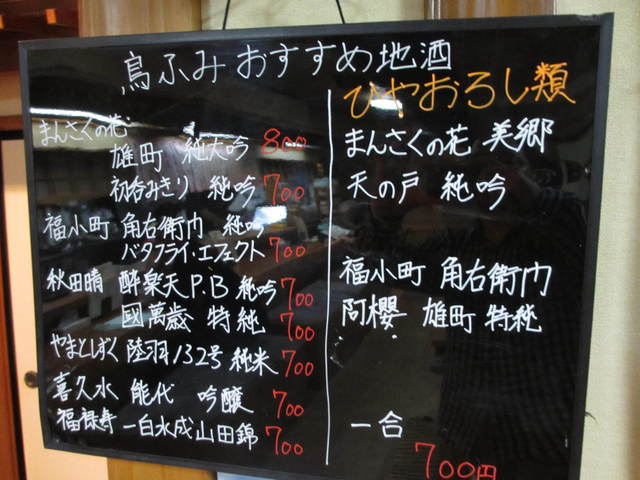 鳥ふみおすすめ地酒
まんさくの花
雄町 純大吟 800
初呑みきり 純吟 700
福小町 角右衛门 純吟
バタフライ・エフェクト 700
秋田晴 酔楽天P.B 純吟 700
國萬歳 特純 700
やまとしずく 陸羽132号 純米 700
喜久水 能代 吟醸 700
福禄寿 一白水成山田錦 700
ひやおろし類
まんさくの花 美郷
天の戸 純吟
福小町 角右衛门
阿櫻 雄町 特純
一合
700円